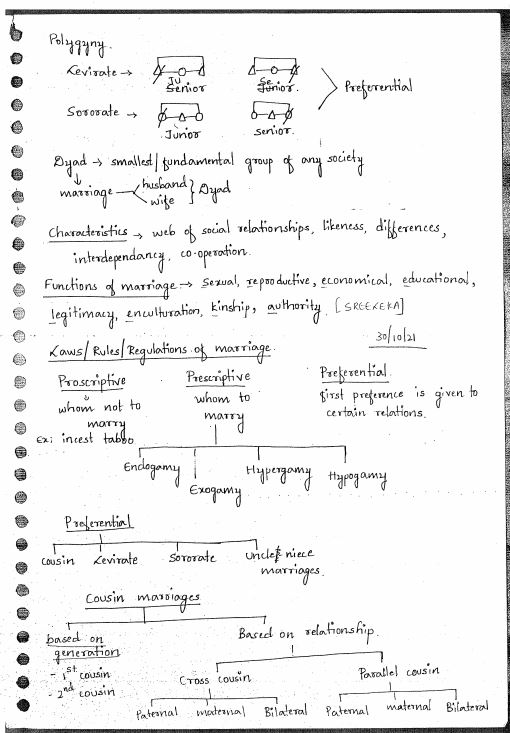 Polygyny.
Levirate →
Ju
Senior
Se
Junior.
Preferential
Sororate →
Junior
senior.
Dyad → smallest/fundamental group of any society
marriage husband
wife } Dyad
Characteristics → web of social relationships, likeness, differences,
interdependancy, co-operation.
Functions of marriage → Sexual, reproductive, economical, educational,
legitimacy, enculturation, kinship, authority. [SREELEKA]
30/10/21
Laws/Rules/Regulations of marriage.
Proscriptive
whom not to
marry
Ex: incest taboo
Prescriptive
whom to
marry
Preferential.
first preference is given to
certain relations.
Endogamy
Exogamy
Hypergamy
Hypogamy
Preferential
Cousin Levirate Sororate Uncle niece
marriages.
Cousin marriages
based on
generation
- 1st cousin
- 2nd cousin
Based on relationship.
Cross cousin
Parallel cousin
Paternal maternal Bilateral
Paternal maternal Bilateral